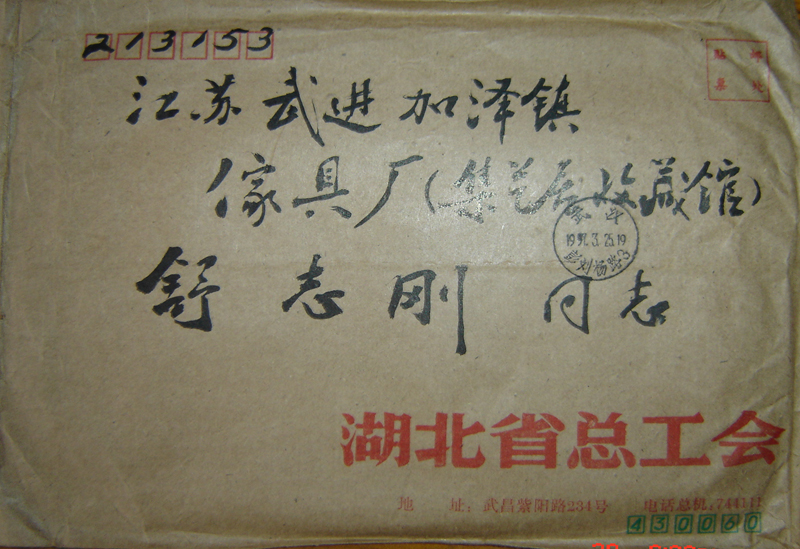 213153
贴 邮
票 处
江苏武进加泽镇
傢具厂(集艺居收藏馆)
武昌
彭刘杨路3
舒志刚 同志
湖北省总工会
地 址:武昌紫阳路234号 电话总机:74414
430060